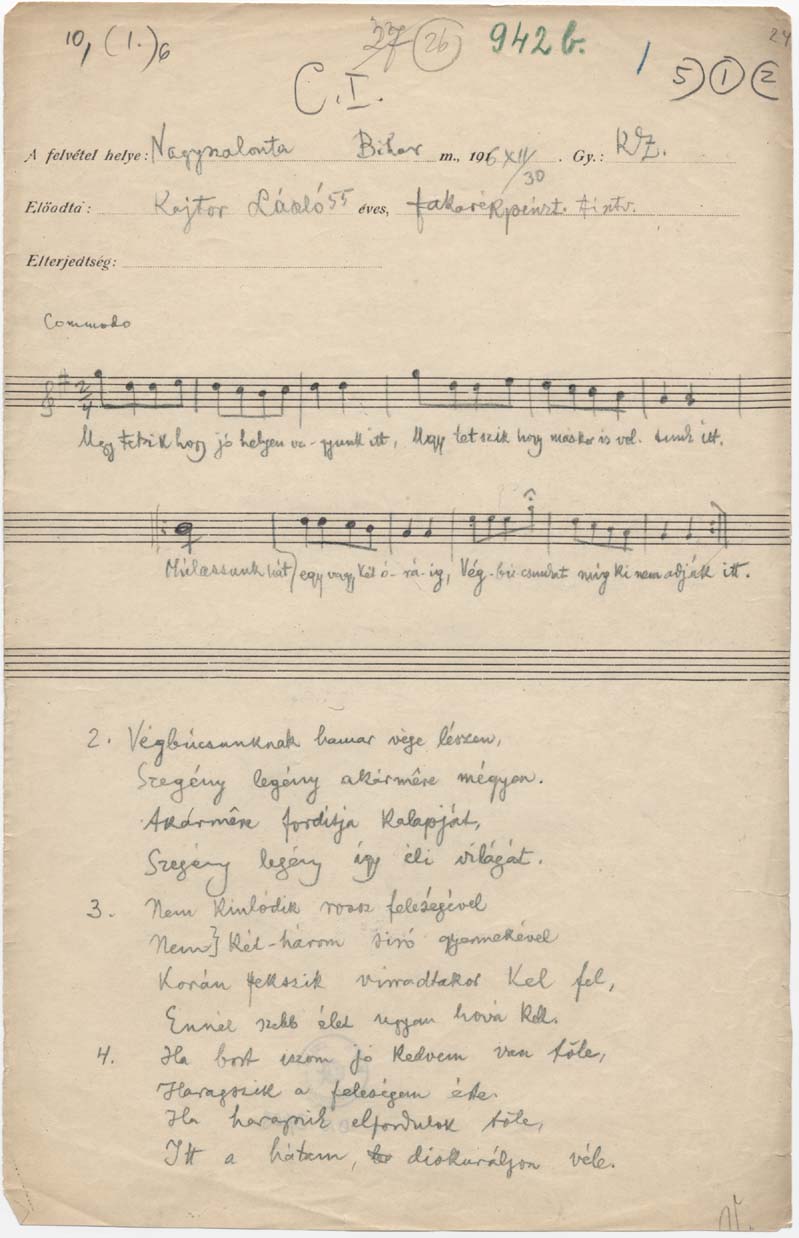 10, (1.) 6 37 (26) 942 b. / 24
C.I. 5) (1) (2
A felvétel helye: Nagyszalonta Bihar m., 1916 XII/30. Gy.: KZ.
Előadta: Kajtor László 55 éves, takarékpénzt.
Elterjedtség:
Commodo
2/4
Ugy tetszik hogy jó helyen va-gyunk itt, Ugy tetszik hogy máskor is vol-tunk itt.
Múlassunk hát egy vagy két ó-rá-ig, Vég-bú csunkat míg ki nem adják itt.
2. Végbúcsunknak hamar vége lészen,
Szegény legény akármêre mégyen.
Akármêre fordítja kalapját,
Szegény legény így éli világát.
3. Nem kinlódik rossz feleségével
Nem} két-három síró gyermekével
Korán fekszik virradtakor kel fel,
Ennél szebb élet ugyan hová kell.
4. Ha bort iszom jó kedvem van tőle,
Haragszik a feleségem érte.
Ha haragszik elfordulok tőle,
Itt a hátam, diskuráljon véle.